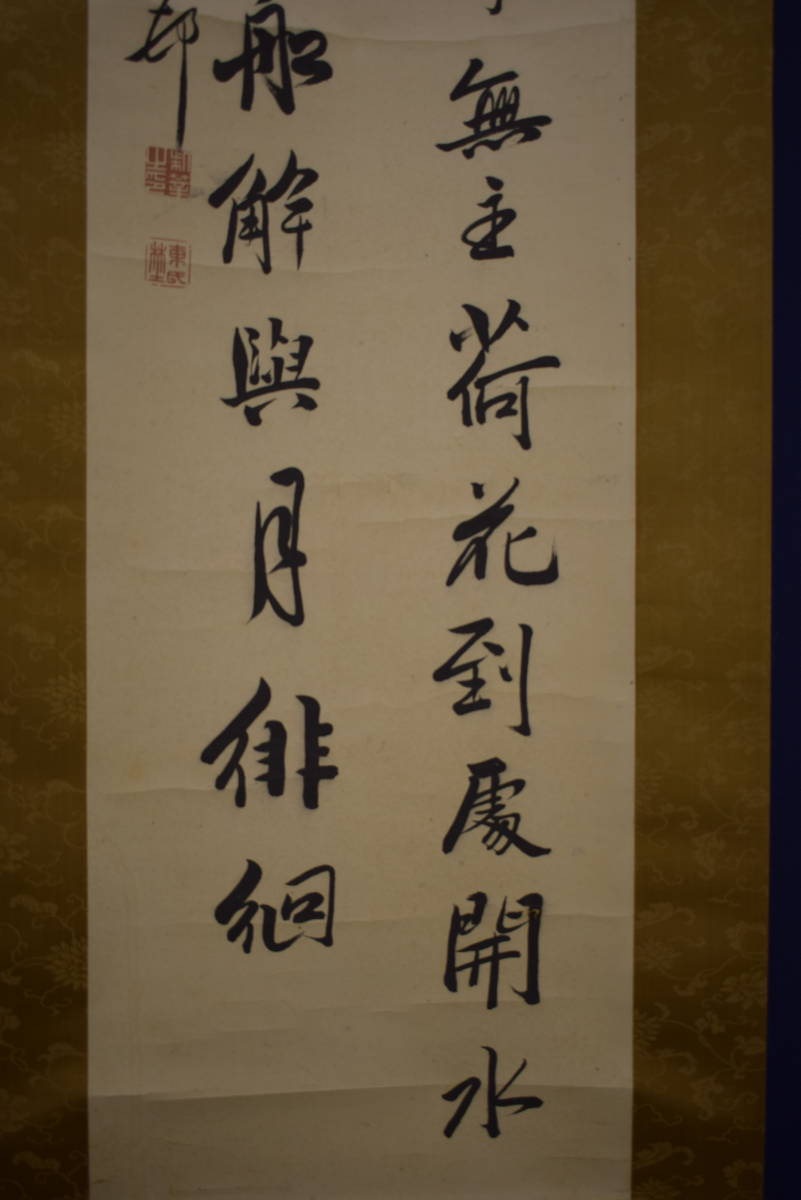 無主荷花到處開水
船解與月徘徊
邨